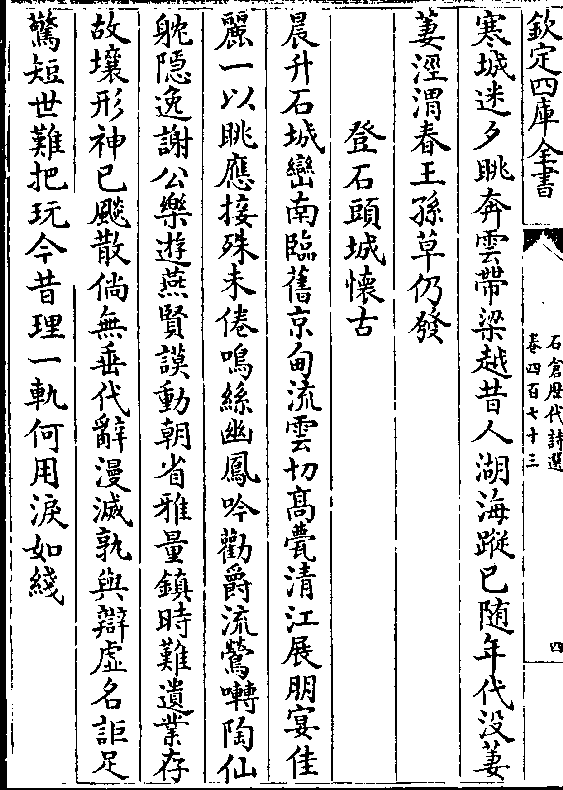 欽定四庫全書
石倉歷代詩選
卷四百七十三
四
寒城迷夕眺奔雲帶梁越昔人湖海蹤已随年代没萋
萋涇渭春王孫草仍發
登石頭城懷古
晨升石城巒南臨舊京甸流雲切髙甍清江展朋宴佳
麗一以眺應接殊未倦嗚絲幽鳳吟勸爵流鶯囀陶仙
躭隠逸謝公樂遊燕賢謨動朝省雅量鎮時難遺業存
故壤形神已飈散倘無垂代辭漫滅孰與辯虚名詎足
驚短世難把玩今昔理一軌何用淚如綫